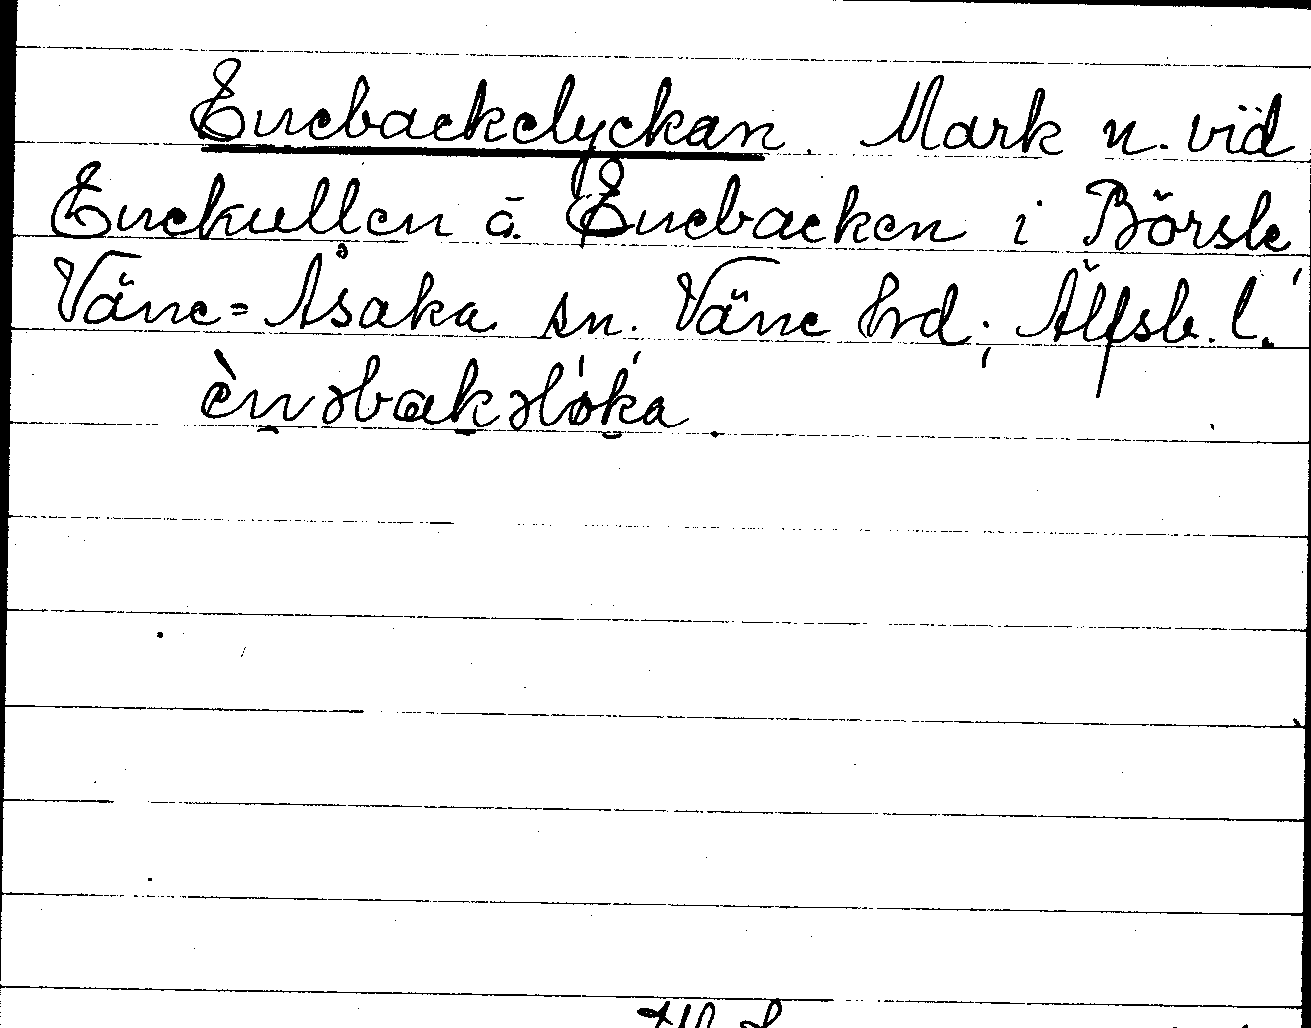 Enebackelyckan. Mark n. vid
Enekullen å. Enebacken i Börsle,
Väne=Åsaka sn. Väne hrd; Älfsb. l.
ènəbakəlǿka.